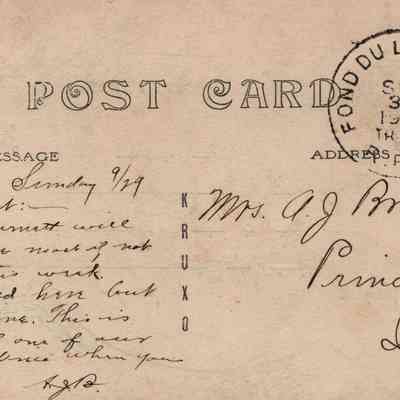 POST CARD
FOND DU L
S
3
19
ESSAGE
ADDRESS
Sunday 9/29
will
most of not
is week
ed here but
one. This is
one of our
when you
A.J.B.
KRUXO
Mrs. A. J. Br
Prin